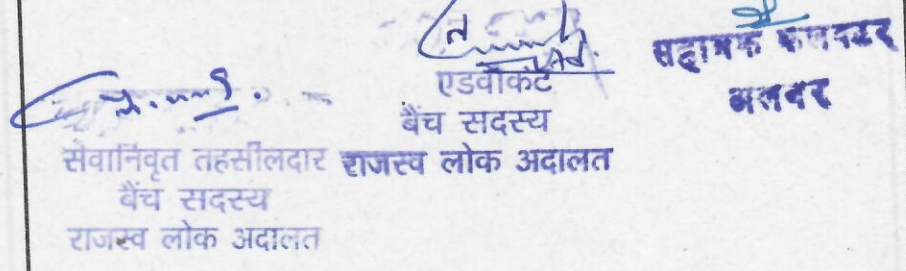 सेवानिवृत तहसीलदार
बैंच सदस्य
राजस्व लोक अदालत
एडवोकेट
बैंच सदस्य
राजस्व लोक अदालत
सहायक कलक्टर
अलवर